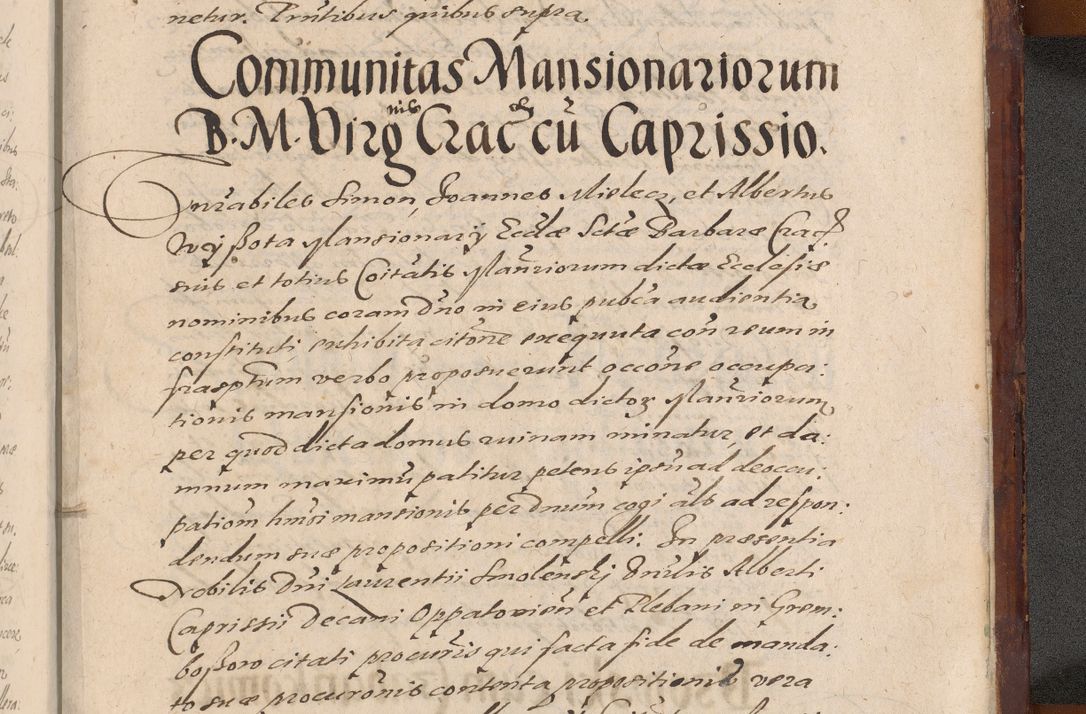 netur. Pntibus quibus supra.
Communitas Mansionariorum
B. M. Virg nis Crac en cū Caprissio.
Vnrabiles Simon, Joannes Mislecz, et Albertus
Wyssota Mansionarij Ecclæ Sctæ Barbaræ Crac
suis et totius Coitatis Manriorum dictæ Ecclesiæ
nominibus coram Dno in eius pubca audientia
constituti exhibita citone exequuta con reum in
frasptum verbo proposuerunt occone occupa:
tionis mansionis in domo dictor Manriorum
per quod dicta domus ruinam minatur, et da:
mnum maximū patitur petens ipsū ad deoccu:
pationem hmoi mansionis per Dnum cogi als ad respon:
dendum suæ propositioni compelli. In præsentia
Nobilis Dni Laurentii Smolenskj Vnrlis Alberti
Caprissii Decani Oppatovien et Plebani in Grem:
bossoro citati procuris qui facta fide de manda:
to suæ procuronis contenta propositionis vera